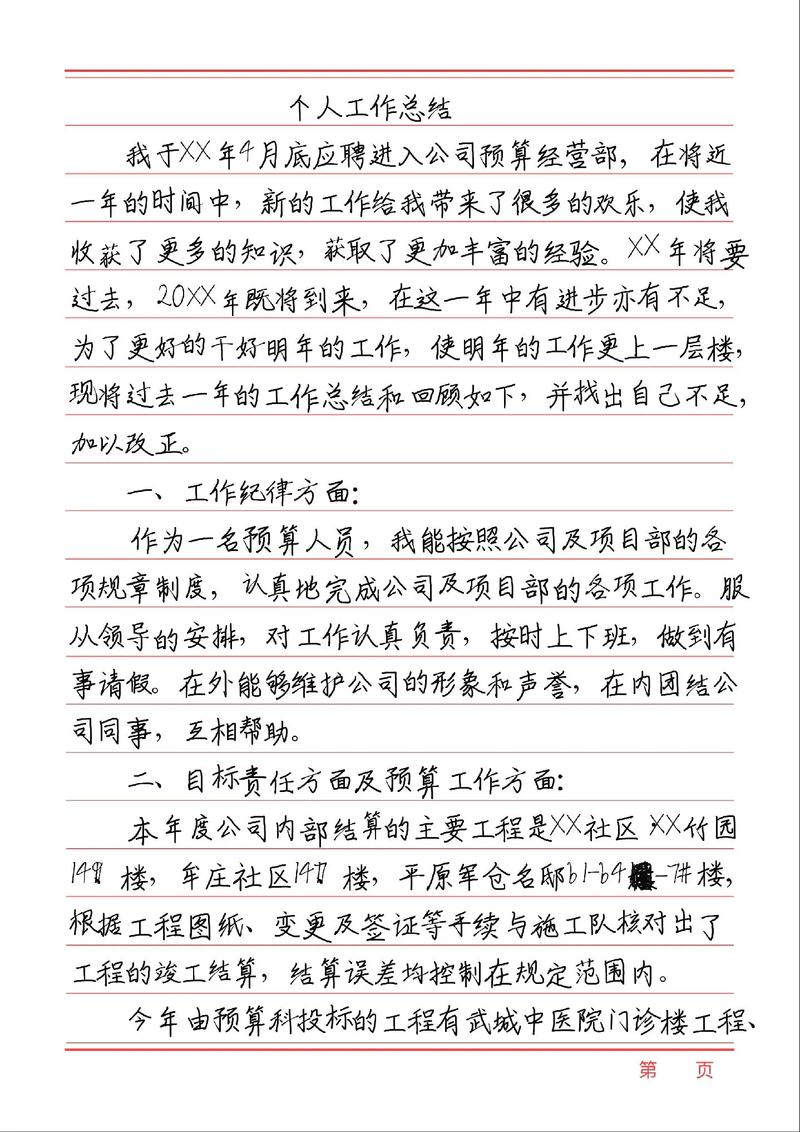 个人工作总结
我于XX年4月底应聘进入公司预算经营部，在将近
一年的时间中，新的工作给我带来了很多的欢乐，使我
收获了更多的知识，获取了更加丰富的经验。XX年将要
过去，20XX年既将到来，在这一年中有进步亦有不足，
为了更好的干好明年的工作，使明年的工作更上一层楼，
现将过去一年的工作总结和回顾如下，并找出自己不足，
加以改正。
一、工作纪律方面：
作为一名预算人员，我能按照公司及项目部的各
项规章制度，认真地完成公司及项目部的各项工作。服
从领导的安排，对工作认真负责，按时上下班，做到有
事请假。在外能够维护公司的形象和声誉，在内团结公
司同事，互相帮助。
二、目标责任方面及预算工作方面：
本年度公司内部结算的主要工程是XX社区XX竹园
楼，牟庄社区 楼，平原军仓名邸b1-b4 -7#楼，
根据工程图纸、变更及签证等手续与施工队核对出了
工程的竣工结算，结算误差均控制在规定范围内。
今年由预算科投标的工程有武城中医院门诊楼工程、
第 页